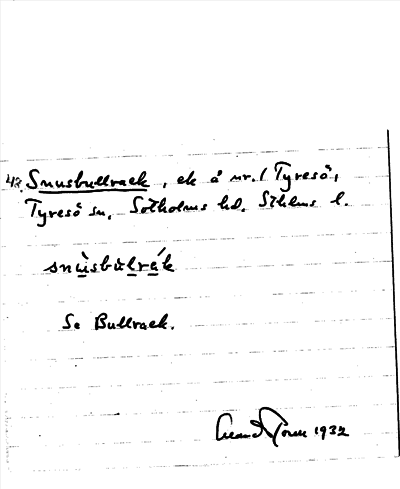 48. Snusbullrack, ek å nr. 1 Tyresö,
Tyresö sn. Sotholms hd. Sthlms l.
snùsbùlrák
Se Bullrack.
1932